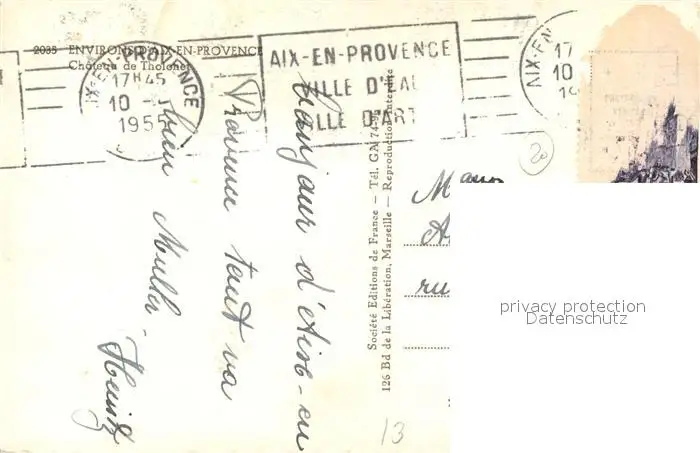 2035 ENVIRONS D'AIX-EN-PROVENCE
Château de Tholonet
AIX-EN-PROVENCE
17H45
10
195
AIX-EN-PROVENCE
VILLE D'EAU
VILLE D'ART
AIX-EN
17
10
19
20
bonjour d'Aix-en
Provence tout va
bien
Heinz
Société Editions de France — Tél. GA 74-9 
126 Bd de la Libération, Marseille — Reproduction interdite
M
A
ru
13
privacy protection
Datenschutz